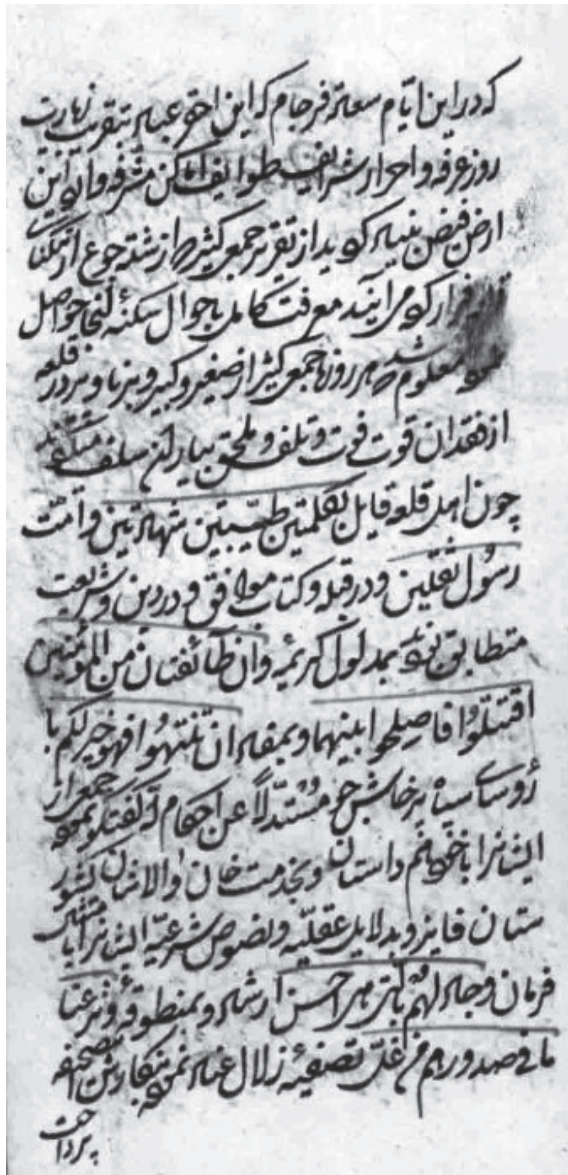 که در این ایام سعادت فرجام که این احقر عباد بتقریب زیارت
روز عرفه و احراز شرایف طوایف اماکن مشرفه وارد این
ارض فیض بنیاد گردید از تقریر جمعی کثیر که از شدت جوع از تنگنای
فرار کرده می آیند معرفت کامل باحوال سکنه آنجا حاصل
نموده معلوم شد که هر روزه جمعی کثیر از صغیر و کبیر و برنا و پیر در قلعه
از فقدان قوت فوت و تلف و ملحق بیاران سلف میگردند
چون اهل قلعه قایل بکلمتین طیبتین شهادتین و امت
رسول ثقلین و در قبله و کتاب موافق و در دین و شریعت
متطابق بودند بمدلول کریمه وان طائفتان من المؤمنین
اقتتلوا فاصلحوا بینهما و بمفاد ان تنتهوا فهو خیر لکم با
رؤسای سپاه پرخاش جو مستدلاً عن احکام اله گفتگو نموده جمعی از
ایشانرا با خود هم داستان و بخدمت خان والاشان کشور
ستان فایز و بدلایل عقلیه و نصوص شرعیه ایشانرا با
فرمان وجادلهم بالتی هی احسن ارشاد و بمنطوقه ونزعنا
ما فی صدورهم من غل تصفیه زلال عناد نموده بنگارش
پرداخت